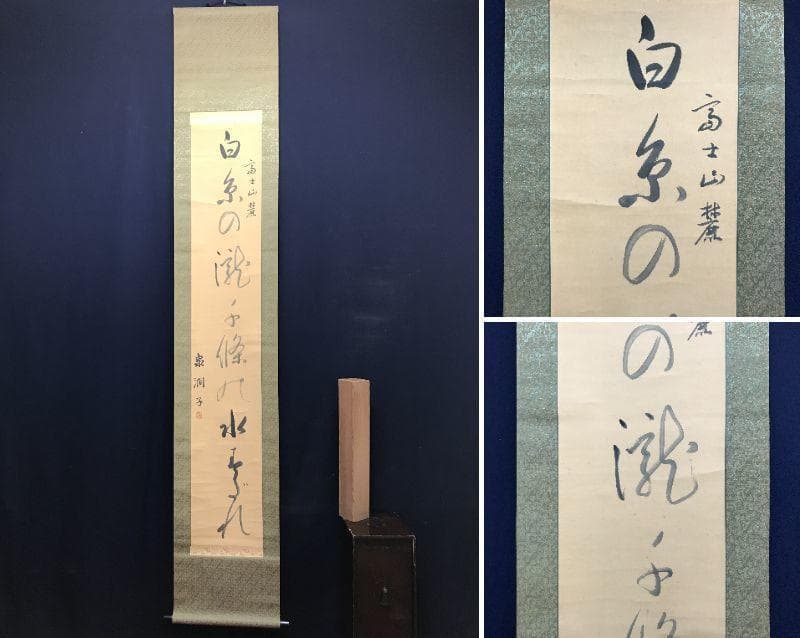 富士山麓
白糸の瀧千條の水すだれ
富士山麓
白糸の
の瀧千